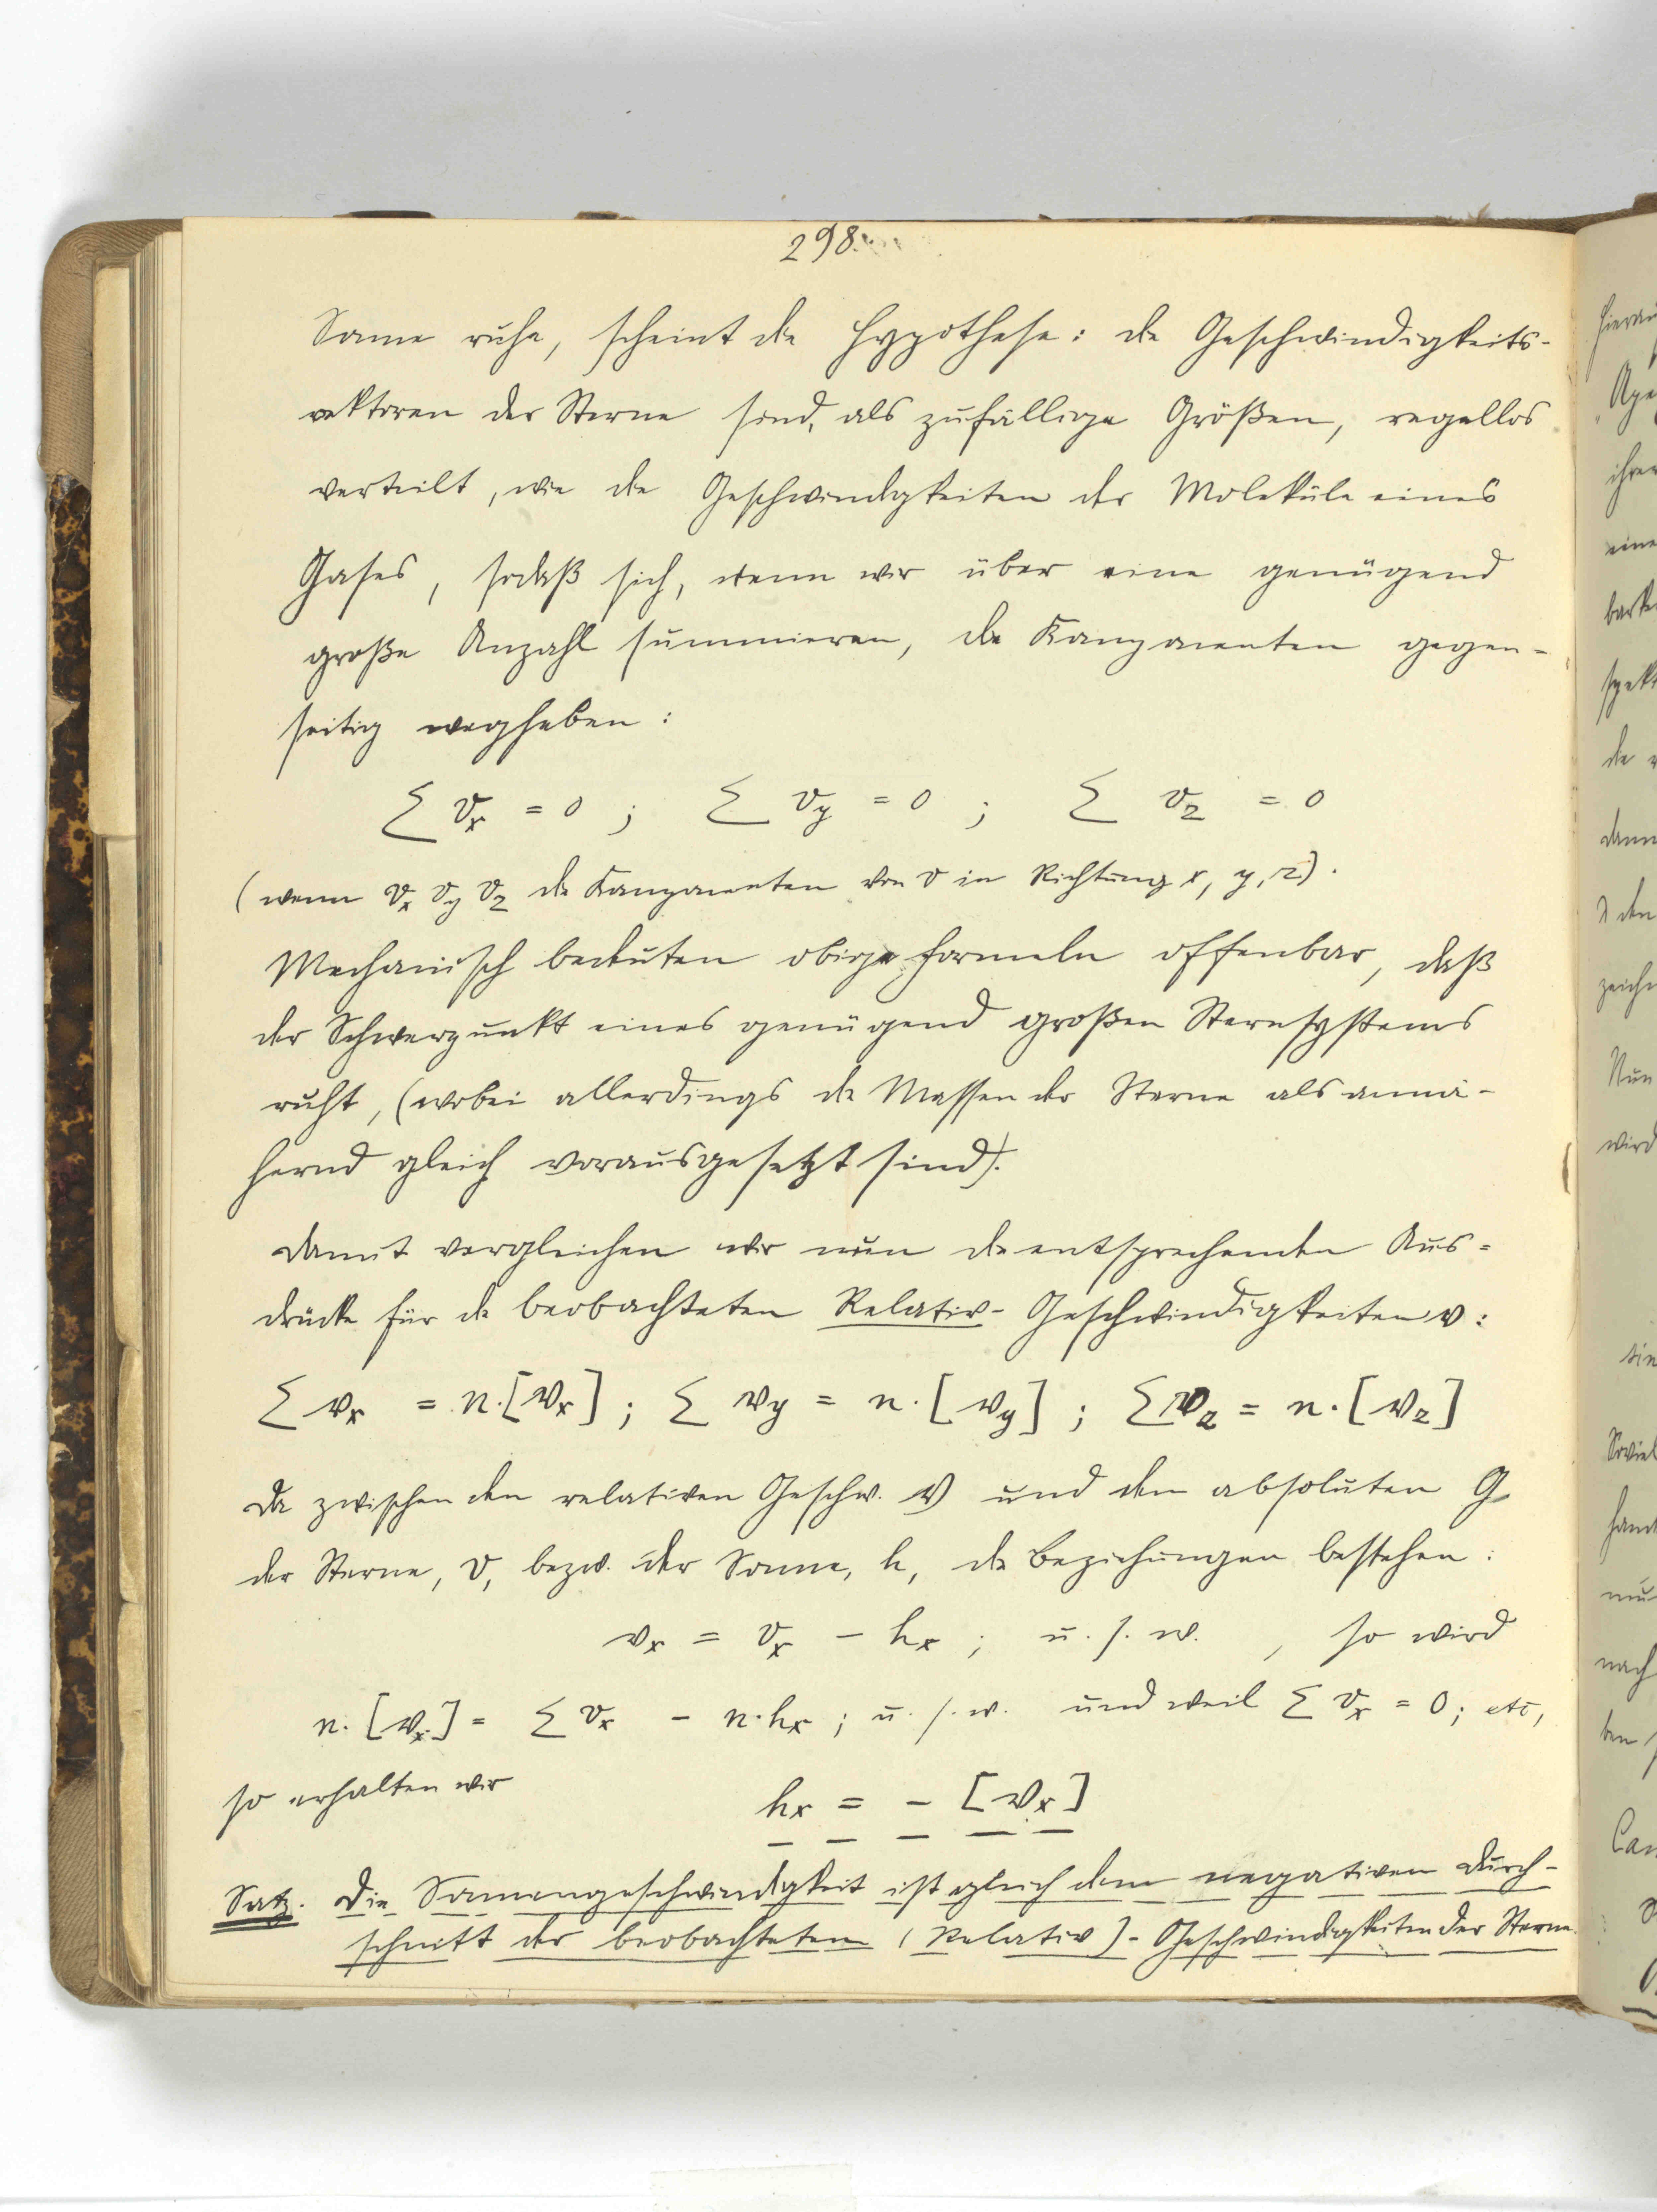 298.
Sonne ruhe, scheint die Hypothese: die Geschwindigkeits-
vektoren der Sterne sind, als zufällige Größen, regellos
verteilt, wie die Geschwindigkeiten der Moleküle eines
Gases, sodaß sich, wenn wir über eine genügend
große Anzahl summieren, die Komponenten gegen-
seitig wegheben:
Σ v_x = 0 ; Σ v_y = 0 ; Σ v_z = 0
(wenn v_x v_y v_z die Komponenten von v in Richtung x, y, z).
Mechanisch bedeuten obige Formeln offenbar, daß
der Schwerpunkt eines genügend großen Sternsystems
ruht, (wobei allerdings die Massen der Sterne als annä-
hernd gleich vorausgesetzt sind).
Damit vergleichen wir nun die entsprechenden Aus=
drücke für die beobachteten Relativ-Geschwindigkeiten v:
Σ v_x = n.[v_x] ; Σ v_y = n.[v_y] ; Σ v_z = n.[v_z]
Da zwischen den relativen Geschw. v und den absoluten G
der Sterne, v, bezw. der Sonne, h, die Beziehungen bestehen:
v_x = v_x - h_x ; u.s.w. , so wird
n.[v_x] = Σ v_x - n.h_x ; u.s.w. und weil Σ v_x = 0; etc,
so erhalten wir h_x = - [v_x]
Satz. Die Sonnengeschwindigkeit ist gleich dem negativen Durch-
schnitt der beobachteten (Relativ)-Geschwindigkeiten der Sterne.